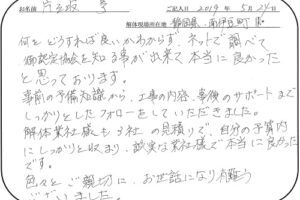 お名前 片 享 ご記入日 2019年 5月24日
解体現場所在地 静岡県 南伊豆町
何をどうすれば良いかわからず、ネットで調べて
御認定協会を知る事が出来て本当に良かった
と思っております。
事前の予備知識から、工事の内容、事後のサポートまで
しっかりとしたフォローをしていただきました。
解体業社様も3社の見積りで、自分の予算内
にしっかりと収まり、誠実な業社様で本当に良かった
です。
色々とご親切に、お世話になり有難う
ございました。